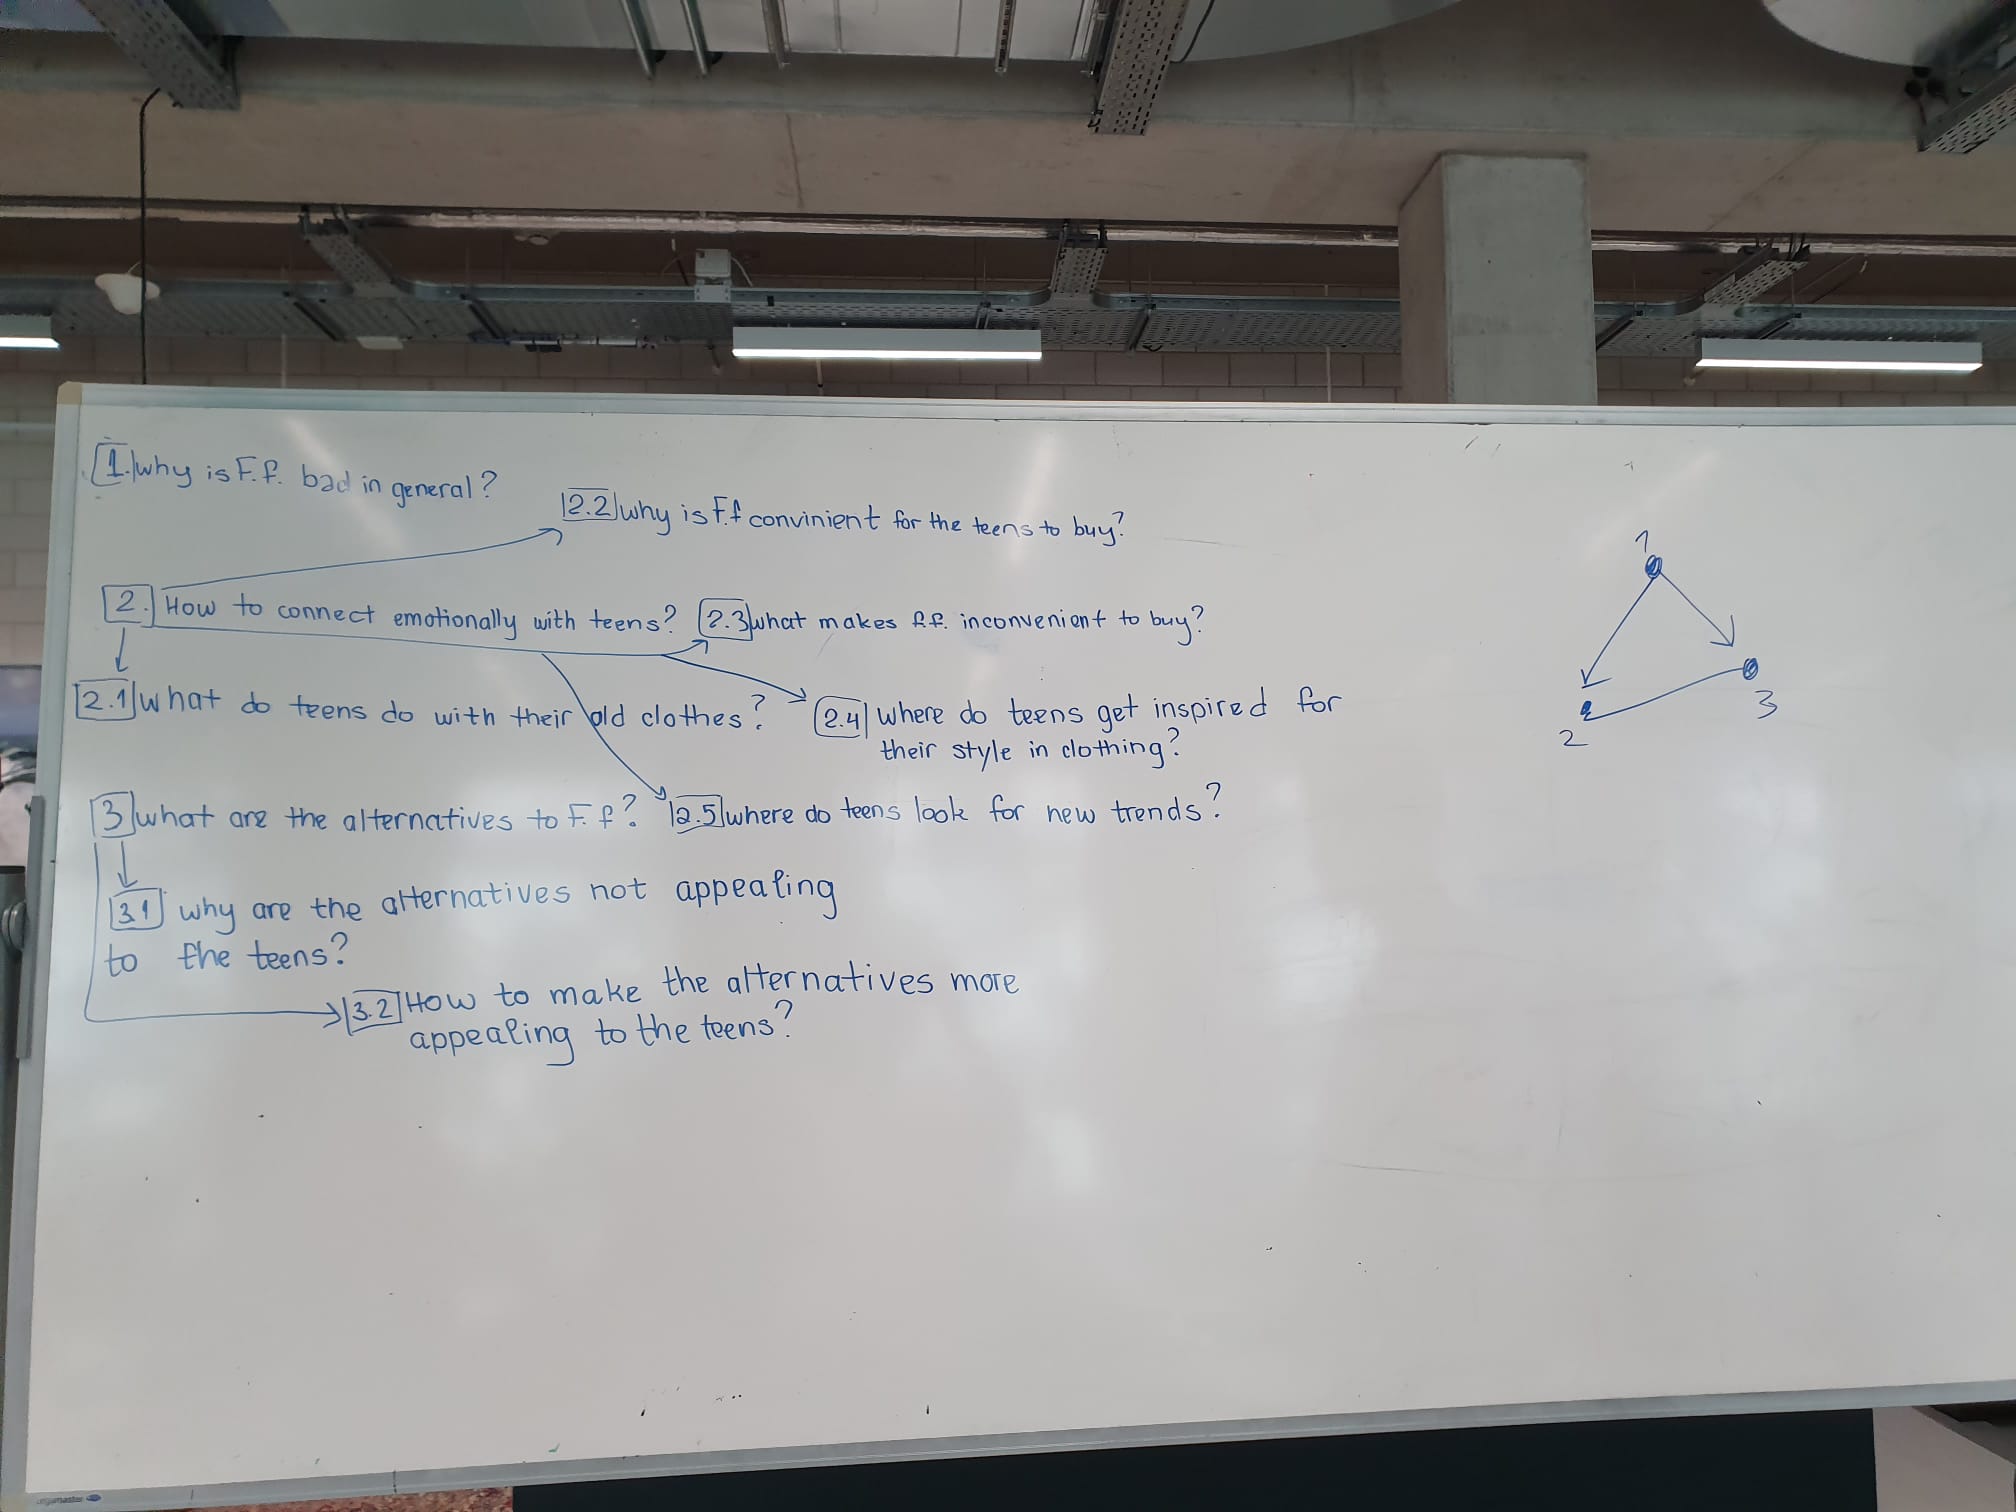 1. why is F.f. bad in general?
2.2 why is F.f convinient for the teens to buy?
2. How to connect emotionally with teens?
2.3 what makes f.f. inconvenient to buy?
2.1 What do teens do with their old clothes?
2.4 where do teens get inspired for
their style in clothing?
3 what are the alternatives to F.f?
2.5 where do teens look for new trends?
3.1 why are the alternatives not appealing
to the teens?
3.2 How to make the alternatives more
appealing to the teens?
1
2
3